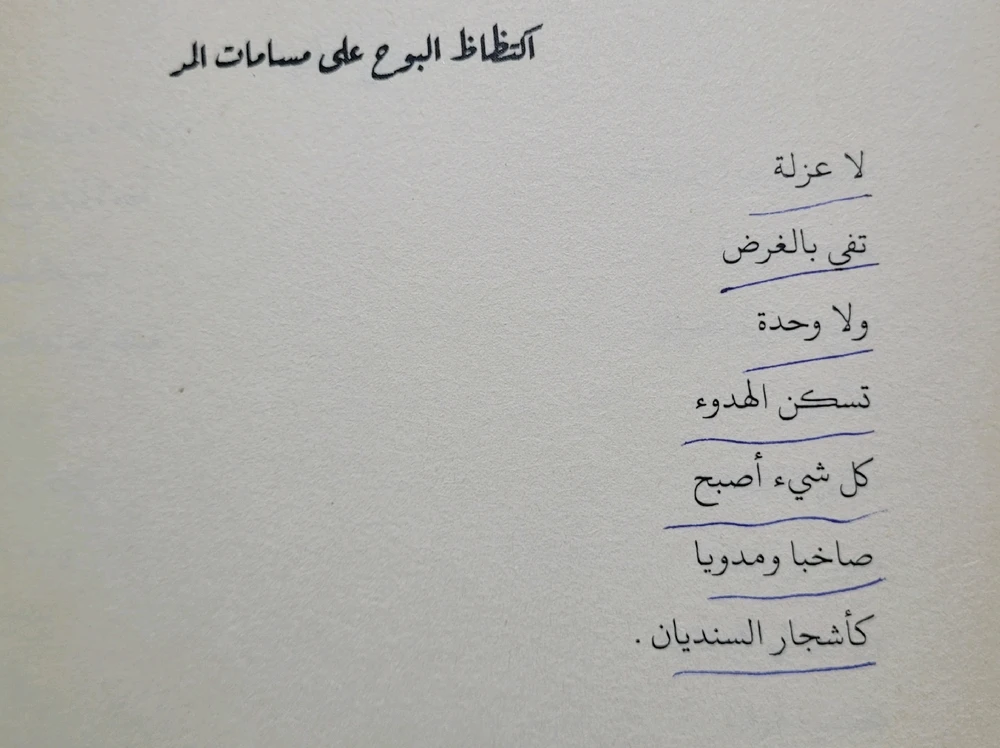 اكتظاظ البوح على مسامات المر
لا عزلة
تفي بالغرض
ولا وحدة
تسكن الهدوء
كل شيء أصبح
صاخبا ومدويا
كأشجار السنديان .